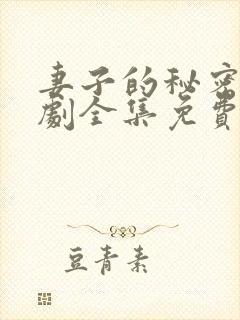 妻子的秘密
劇全集免費
豆青素